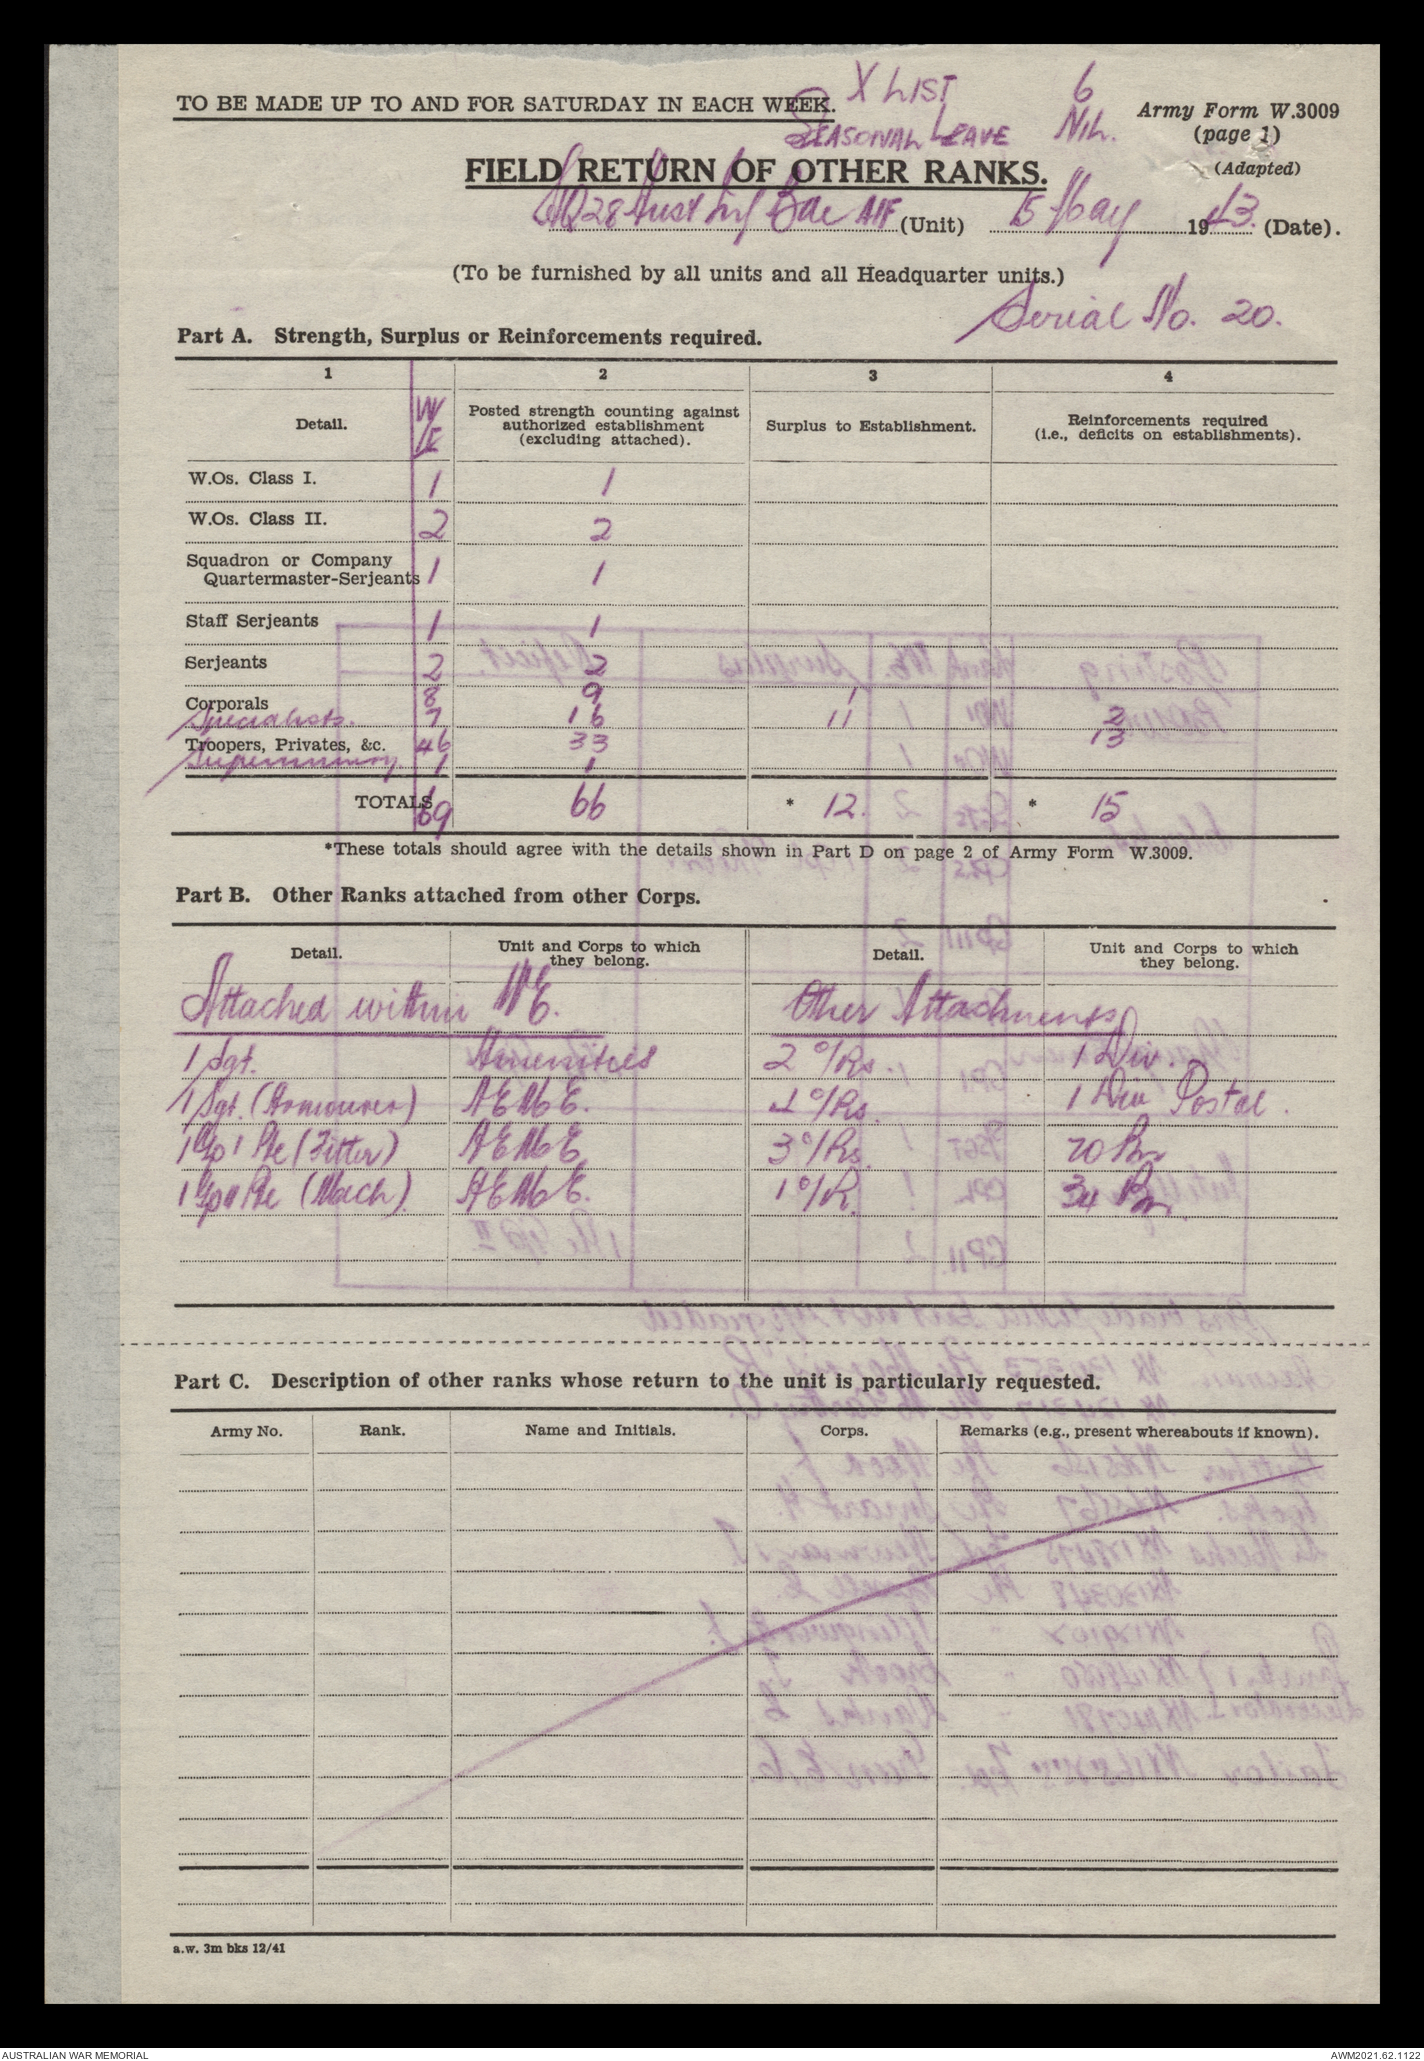 X LIST 6
TO BE MADE UP TO AND FOR SATURDAY IN EACH WEEK.
Army Form W.3009
SEASONAL LEAVE NIL.
(page 1)
FIELD RETURN OF OTHER RANKS.
(Adapted)
HQ 28 Aust Inf Bde AIF (Unit) 15 May 1943. (Date).
(To be furnished by all units and all Headquarter units.)
Serial No. 20.
Part A. Strength, Surplus or Reinforcements required.
1 2 3 4
Detail. W/E Posted strength counting against authorized establishment (excluding attached). Surplus to Establishment. Reinforcements required (i.e., deficits on establishments).
W.Os. Class I. 1 1
W.Os. Class II. 2 2
Squadron or Company
Quartermaster-Serjeants 1 1
Staff Serjeants 1 1
Serjeants 2 2
Corporals 8 9 1
Specialists. 7 16 11 2
Troopers, Privates, &c. 46 33 13
Supernumary 1 1
TOTALS 69 66 * 12. * 15
*These totals should agree with the details shown in Part D on page 2 of Army Form W.3009.
Part B. Other Ranks attached from other Corps.
Detail. Unit and Corps to which they belong. Detail. Unit and Corps to which they belong.
Attached within WE. Other Attachments
1 Sgt. Amenities 2 O/Rs. 1 Div.
1 Sgt. (Armourer) AEME. 1 O/Rs. 1 Div Postal.
1 Gp 1 Pte (Fitter) AEME 3 O/Rs. 20 Bn
1 Gp II Pte (Mech). AEME. 1 O/R. 34 Bn.
Part C. Description of other ranks whose return to the unit is particularly requested.
Army No. Rank. Name and Initials. Corps. Remarks (e.g., present whereabouts if known).
a.w. 3m bks 12/41
AUSTRALIAN WAR MEMORIAL AWM2021.62.1122